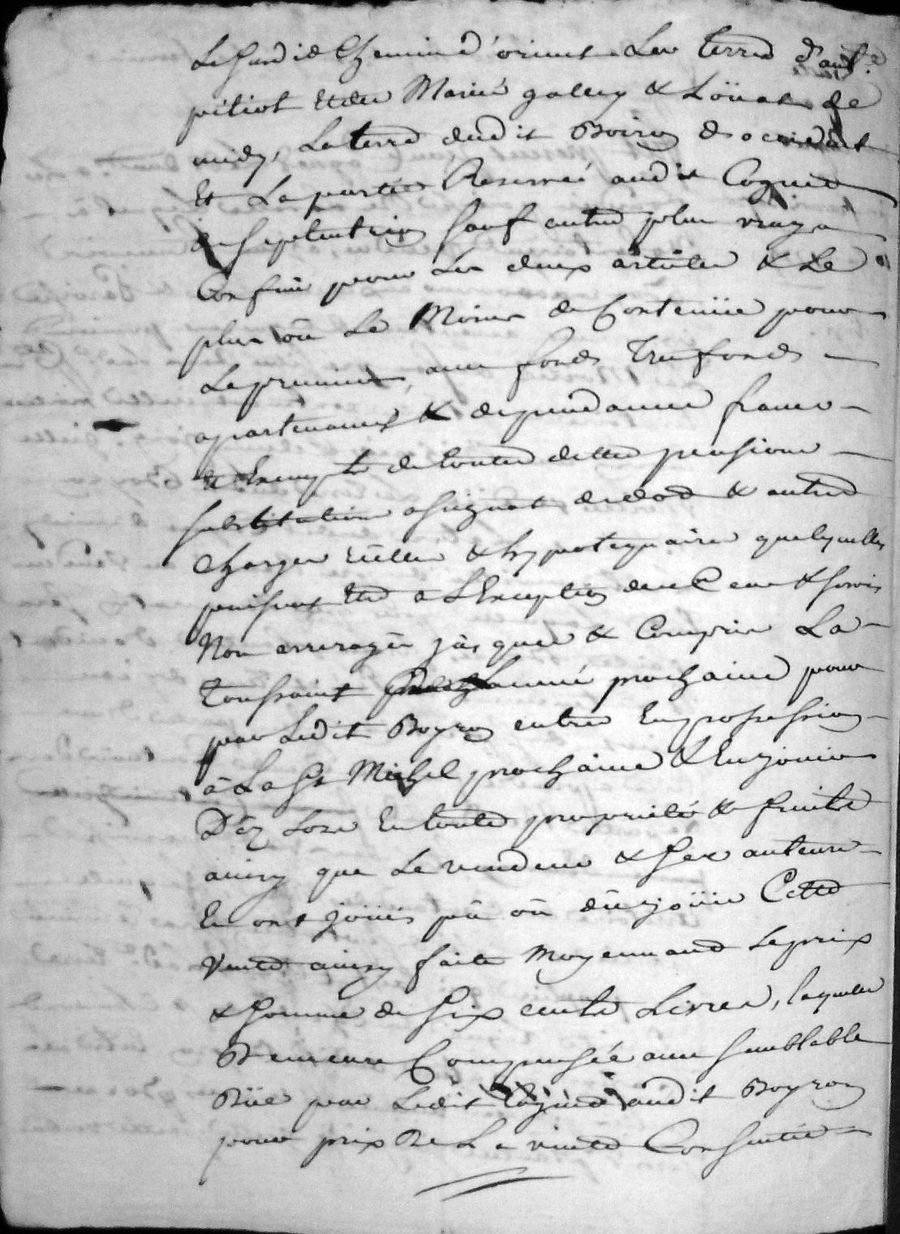 Chemin d'orient Les terres d'
pitiot et de Marie & de
midy, La terre dudit Boiron d'occident
Et La partie Reservée audit
de septentrion sauf autres plus vrays
Confins pour les deux articles & Le
plus où Le Moins de Contenüe pour
Le premier, avec fonds Trefonds
apartenances & dependances franc
& Exempt de toutes dettes pensions
substitution & autres
Charges réelles & hypotequaires quelquelles
puissent Etre a L'Exception &
Non arreragés jusques & Compris La
Toussaint prochaine pour
par Ledit Boyron entrer En possession
à La St Michel prochaine & En jouir
Déz Lors En toutte propriété & fruits
ainsy que Le vendeur & Ses auteurs
En ont joüis pû où dû joüir Cette
Vente ainsy faite Moyennand Le prix
& Somme de Six cents Livres, laquelle
Demeure Compensée avec semblable
Düe par Ledit audit Boyron
pour prix De La vente Consentie